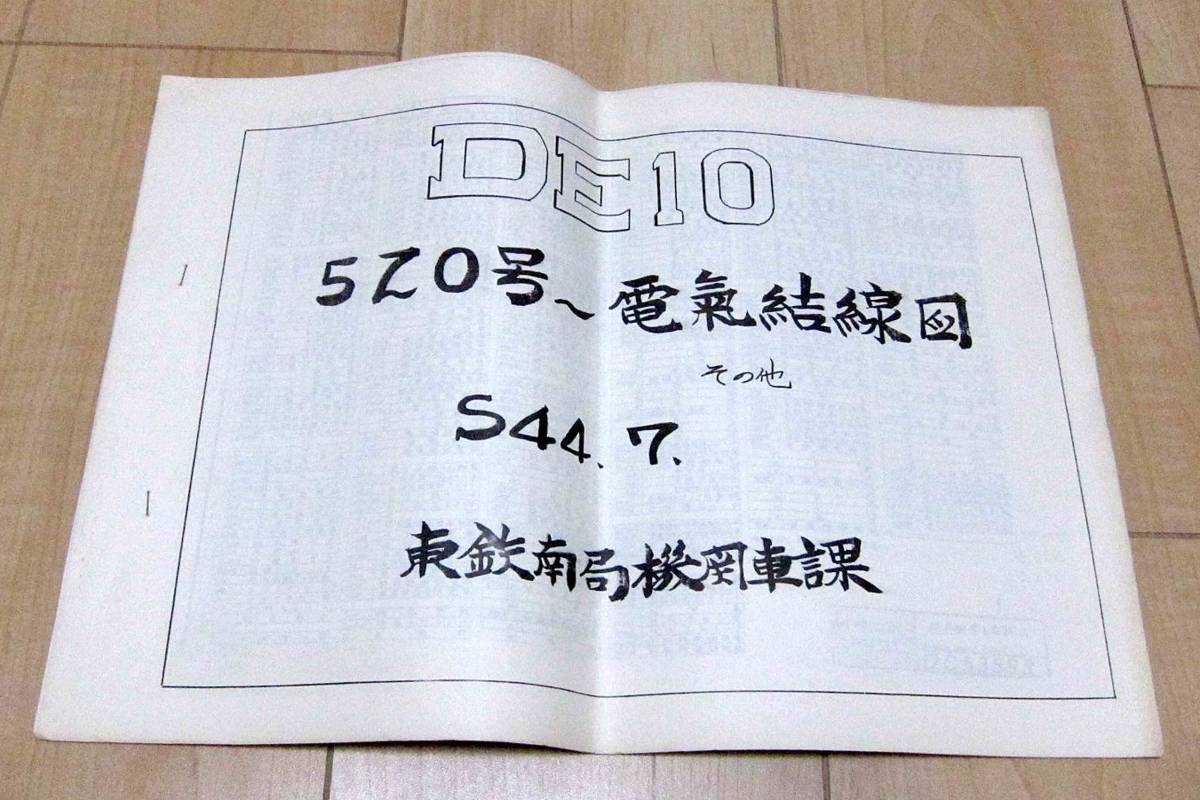 DE10
520号~電氣結線図
その他
S44.7.
東鉄南局機関車課